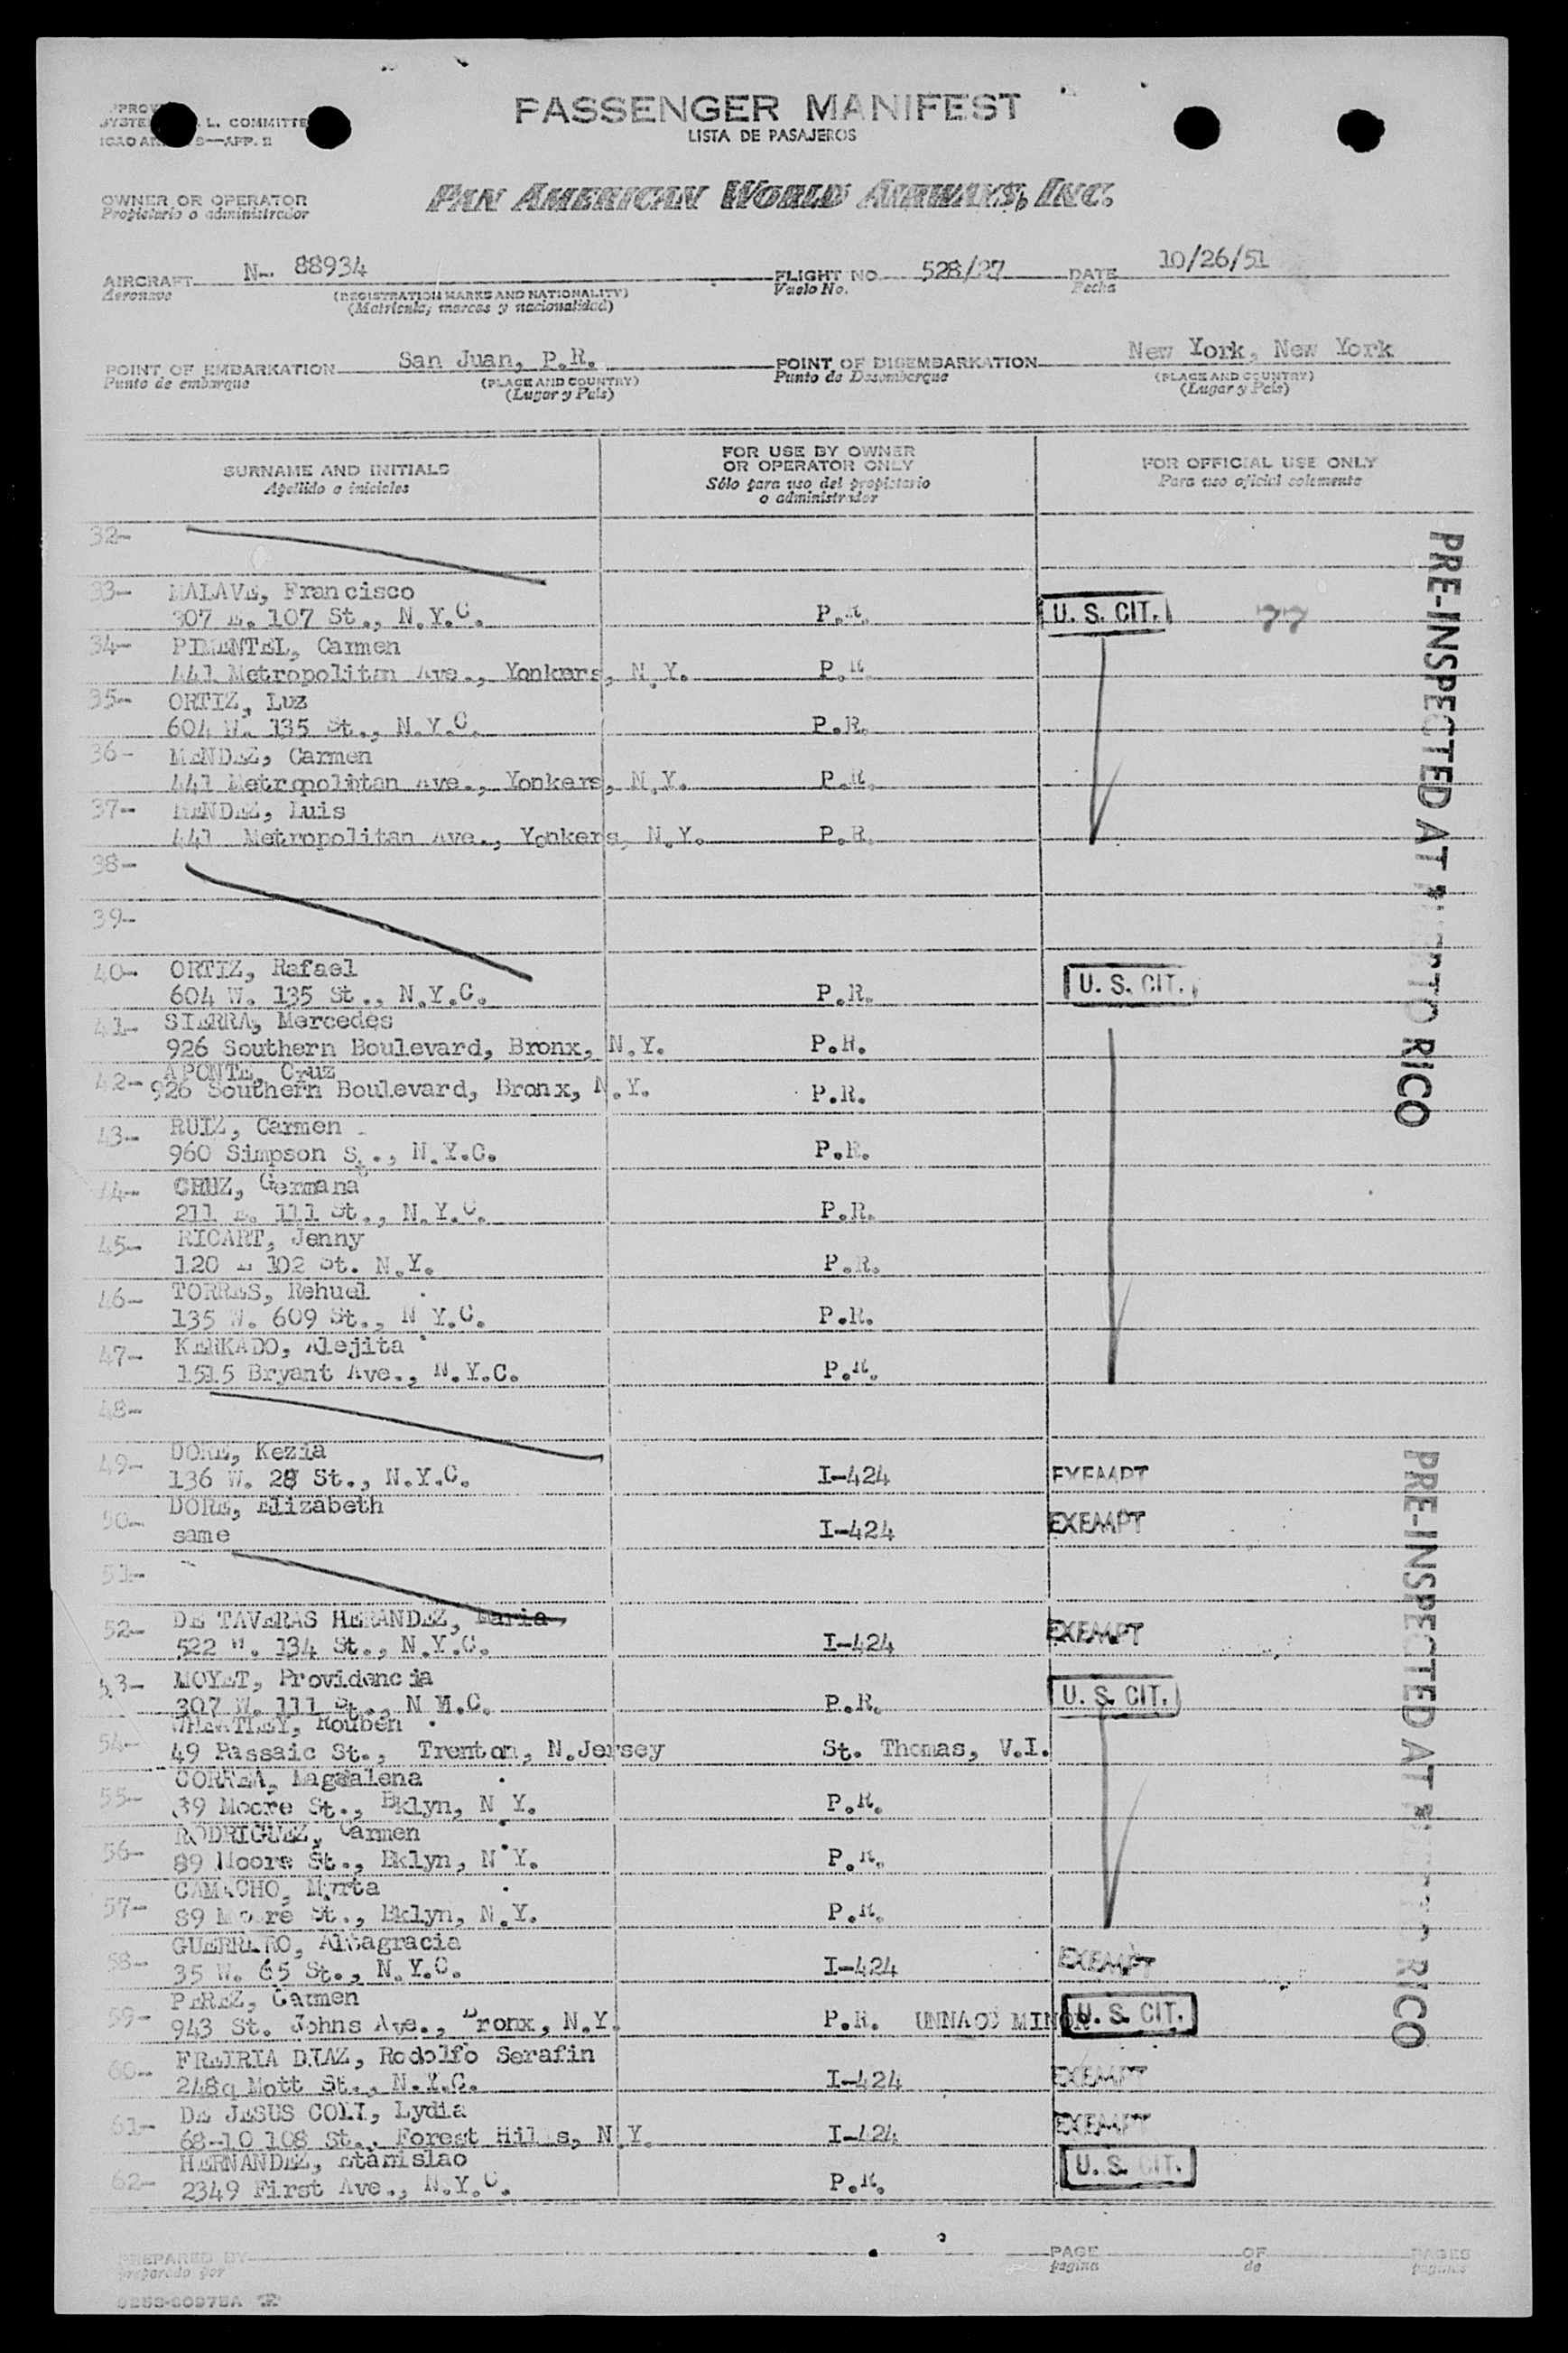 PASSENGER MANIFEST
LISTA DE PASAJEROS
L. COMMITTE
—APP. B
OWNER OR OPERATOR
Propietario o administrador
PAN AMERICAN WORLD AIRWAYS, INC.
AIRCRAFT N- 88934 FLIGHT NO 528/27 DATE 10/26/51
Aeronave (REGISTRATION MARKS AND NATIONALITY) Vuelo No. Fecha
(Matricula, marcas y nacionalidad)
POINT OF EMBARKATION San Juan, P.R. POINT OF DISEMBARKATION New York, New York
Punto de embarque (PLACE AND COUNTRY) Punto de Desembarque (PLACE AND COUNTRY)
(Lugar y Pais) (Lugar y Pais)
SURNAME AND INITIALS
Apellido e iniciales
FOR USE BY OWNER
OR OPERATOR ONLY
Sólo para uso del propietario
o administrador
FOR OFFICIAL USE ONLY
Para uso oficial solamente
32-
33- MALAVE, Francisco
307 E. 107 St., N.Y.C. P.R. U. S. CIT. 77
34- PIMENTEL, Carmen
441 Metropolitan Ave., Yonkers, N.Y. P.R.
35- ORTIZ, Luz
604 W. 135 St., N.Y.C. P.R.
36- MENDEZ, Carmen
441 Metropolitan Ave., Yonkers, N.Y. P.R.
37- MENDEZ, Luis
441 Metropolitan Ave., Yonkers, N.Y. P.R.
38-
39-
40- ORTIZ, Rafael
604 W. 135 St., N.Y.C. P.R. U. S. CIT.
41- SIERRA, Mercedes
926 Southern Boulevard, Bronx, N.Y. P.R.
42- APONTE, Cruz
926 Southern Boulevard, Bronx, N.Y. P.R.
43- RUIZ, Carmen
960 Simpson St., N.Y.C. P.R.
44- CRUZ, Germana
211 E. 111 St., N.Y.C. P.R.
45- RICART, Jenny
120 E 102 St. N.Y. P.R.
46- TORRES, Rehuel
135 W. 609 St., N Y.C. P.R.
47- KERKADO, Alejita
1515 Bryant Ave., N.Y.C. P.R.
48-
49- DORE, Kezia
136 W. 28 St., N.Y.C. I-424 EXEMPT
50- DORE, Elizabeth
same I-424 EXEMPT
51-
52- DE TAVERAS HERANDEZ, Maria
522 W. 134 St., N.Y.C. I-424 EXEMPT
53- MOYET, Providencia
307 W. 111 St., N M.C. P.R. U. S. CIT.
54- WHEATLEY, Rouben
49 Passaic St., Trenton, N.Jersey St. Thomas, V.I.
55- CORREA, Magdalena
39 Moore St., Bklyn, N Y. P.R.
56- RODRIGUEZ, Carmen
89 Moore St., Bklyn, N Y. P.R.
57- CAMACHO, Myrta
89 Moore St., Bklyn, N.Y. P.R.
58- GUERRERO, Altagracia
35 W. 65 St., N.Y.C. I-424 EXEMPT
59- PEREZ, Carmen
943 St. Johns Ave., Bronx, N.Y. P.R. UNNACC MINOR U. S. CIT.
60- FREIRIA DIAZ, Rodolfo Serafin
248q Mott St., N.Y.C. I-424 EXEMPT
61- DE JESUS COLI, Lydia
68-10 108 St., Forest Hills, N.Y. I-424 EXEMPT
62- HERNANDEZ, Etanislao
2349 First Ave., N.Y.C. P.R. U. S. CIT.
PRE-INSPECTED AT PUERTO RICO
PRE-INSPECTED AT PUERTO RICO
PREPARED BY PAGE OF PAGES
preparado por pagina de paginas